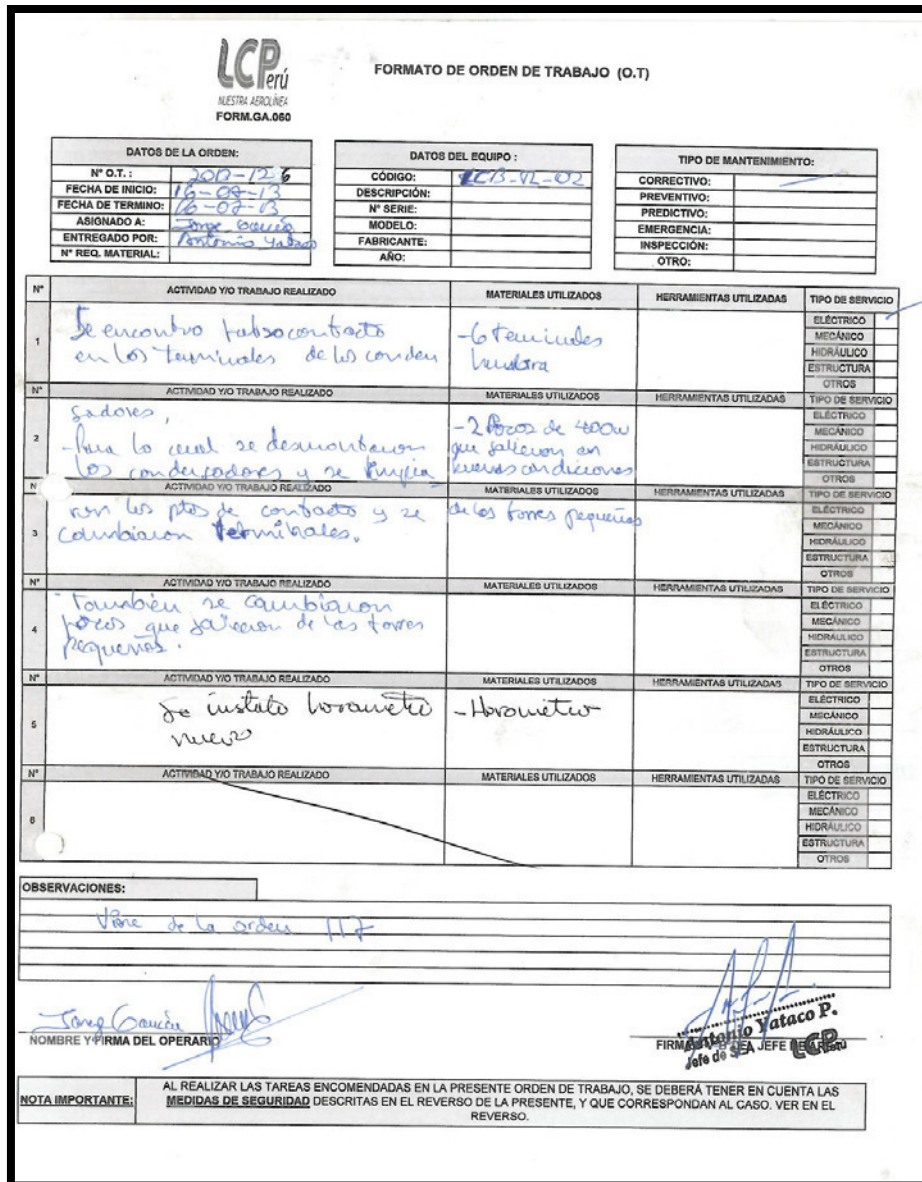 LCPerú
NUESTRA AEROLÍNEA
FORM.GA.060
FORMATO DE ORDEN DE TRABAJO (O.T)
DATOS DE LA ORDEN:
N° O.T. :
FECHA DE INICIO: 16-07-13
FECHA DE TERMINO: 16-07-13
ASIGNADO A: Jorge García
ENTREGADO POR: Antonio Yataco
N° REQ. MATERIAL:
DATOS DEL EQUIPO :
CÓDIGO:
DESCRIPCIÓN:
N° SERIE:
MODELO:
FABRICANTE:
AÑO:
TIPO DE MANTENIMIENTO:
CORRECTIVO:
PREVENTIVO:
PREDICTIVO:
EMERGENCIA:
INSPECCIÓN:
OTRO:
N° ACTIVIDAD Y/O TRABAJO REALIZADO MATERIALES UTILIZADOS HERRAMIENTAS UTILIZADAS TIPO DE SERVICIO
1
Se encontro falso contacto
en los terminales de los conden
-6 terminales
hembra
ELÉCTRICO
MECÁNICO
HIDRÁULICO
ESTRUCTURA
OTROS
N° ACTIVIDAD Y/O TRABAJO REALIZADO MATERIALES UTILIZADOS HERRAMIENTAS UTILIZADAS TIPO DE SERVICIO
2
sadores,
-Para lo cual se desmontaron
los condensadores y se limpia
-2 Focos de 400w
que salieron en
buenas condiciones
ELÉCTRICO
MECÁNICO
HIDRÁULICO
ESTRUCTURA
OTROS
N ACTIVIDAD Y/O TRABAJO REALIZADO MATERIALES UTILIZADOS HERRAMIENTAS UTILIZADAS TIPO DE SERVICIO
3
ron los ptos de contacto y se
cambiaron terminales.
de las torres pequeñas
ELÉCTRICO
MECÁNICO
HIDRÁULICO
ESTRUCTURA
OTROS
N° ACTIVIDAD Y/O TRABAJO REALIZADO MATERIALES UTILIZADOS HERRAMIENTAS UTILIZADAS TIPO DE SERVICIO
4
- También se cambiaron
focos que salieron de las torres
pequeñas.
ELÉCTRICO
MECÁNICO
HIDRÁULICO
ESTRUCTURA
OTROS
N° ACTIVIDAD Y/O TRABAJO REALIZADO MATERIALES UTILIZADOS HERRAMIENTAS UTILIZADAS TIPO DE SERVICIO
5
Se instalo horometro
nuevo
-Horometro
ELÉCTRICO
MECÁNICO
HIDRÁULICO
ESTRUCTURA
OTROS
N° ACTIVIDAD Y/O TRABAJO REALIZADO MATERIALES UTILIZADOS HERRAMIENTAS UTILIZADAS TIPO DE SERVICIO
6
ELÉCTRICO
MECÁNICO
HIDRÁULICO
ESTRUCTURA
OTROS
OBSERVACIONES:
Viene de la orden 117
Jorge García
NOMBRE Y FIRMA DEL OPERARIO
Antonio Yataco P.
Jefe de SEA
LCPerú
NOTA IMPORTANTE:
AL REALIZAR LAS TAREAS ENCOMENDADAS EN LA PRESENTE ORDEN DE TRABAJO, SE DEBERÁ TENER EN CUENTA LAS
MEDIDAS DE SEGURIDAD DESCRITAS EN EL REVERSO DE LA PRESENTE, Y QUE CORRESPONDAN AL CASO. VER EN EL
REVERSO.